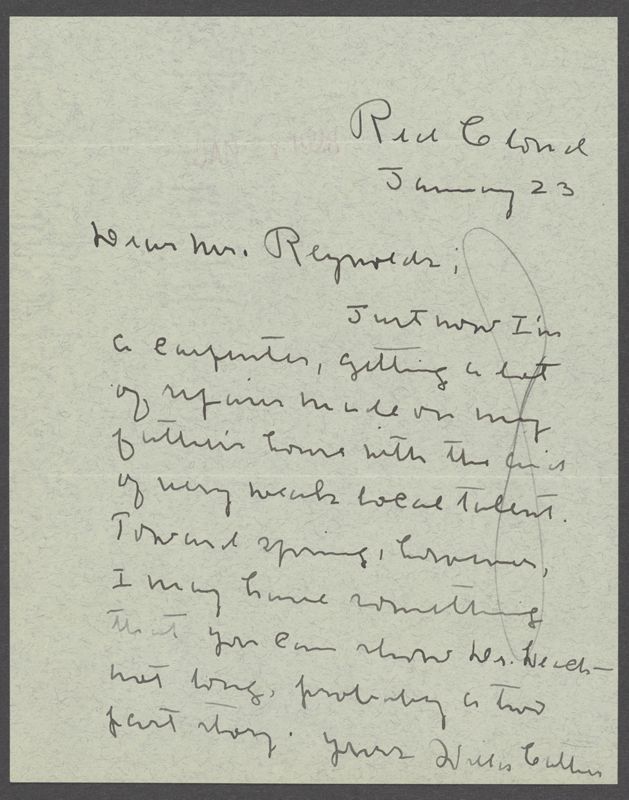 Red Cloud
January 23
Dear Mr. Reynolds;
Just now I'm
a carpenter, getting a lot
of repairs made on my
father's house with the aid
of very weak local talent.
Toward spring, however,
I may have something
that you can show
not long, probably a two
part story. Yours Willa Cather